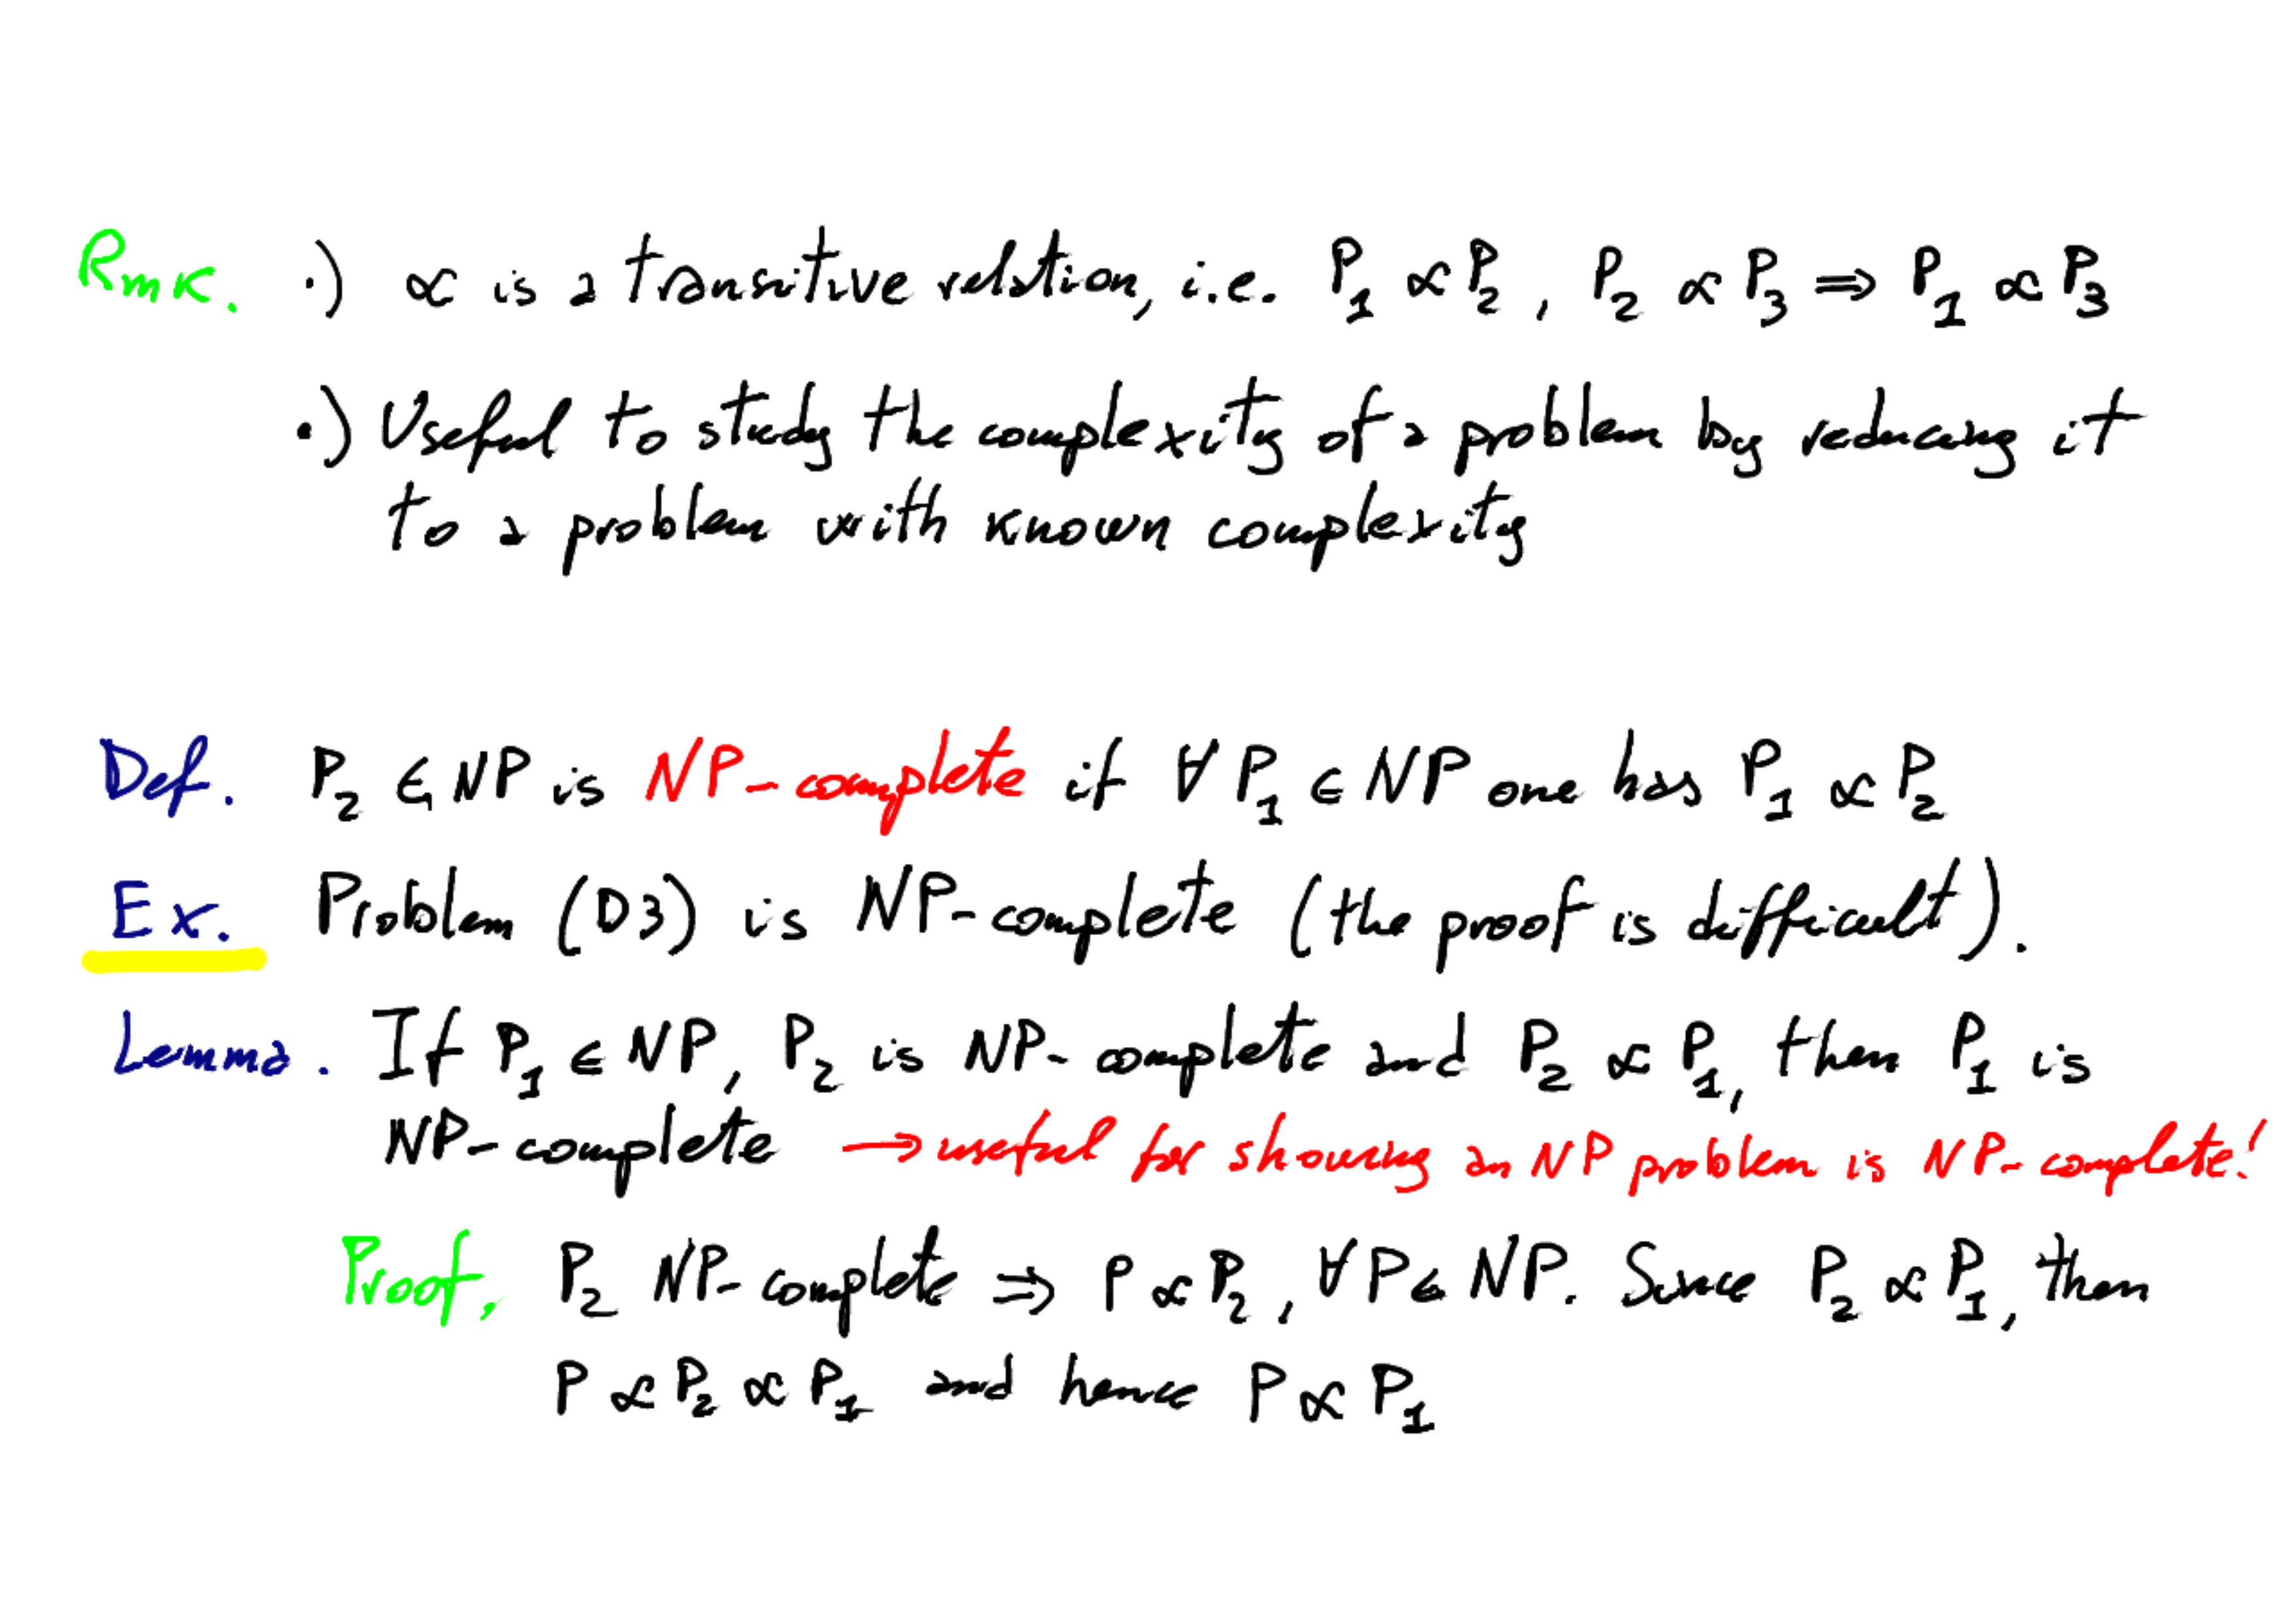 Rmk. •) ∝ is a transitive relation, i.e. P₁ ∝ P₂, P₂ ∝ P₃ ⇒ P₁ ∝ P₃
•) Useful to study the complexity of a problem by reducing it
to a problem with known complexity
Def. P₂ ∈ NP is NP-complete if ∀ P₁ ∈ NP one has P₁ ∝ P₂
Ex. Problem (D3) is NP-complete (the proof is difficult).
Lemma. If P₁ ∈ NP, P₂ is NP-complete and P₂ ∝ P₁, then P₁ is
NP-complete → useful for showing an NP problem is NP-complete!
Proof. P₂ NP-complete ⇒ P ∝ P₂, ∀ P ∈ NP. Since P₂ ∝ P₁, then
P ∝ P₂ ∝ P₁ and hence P ∝ P₁